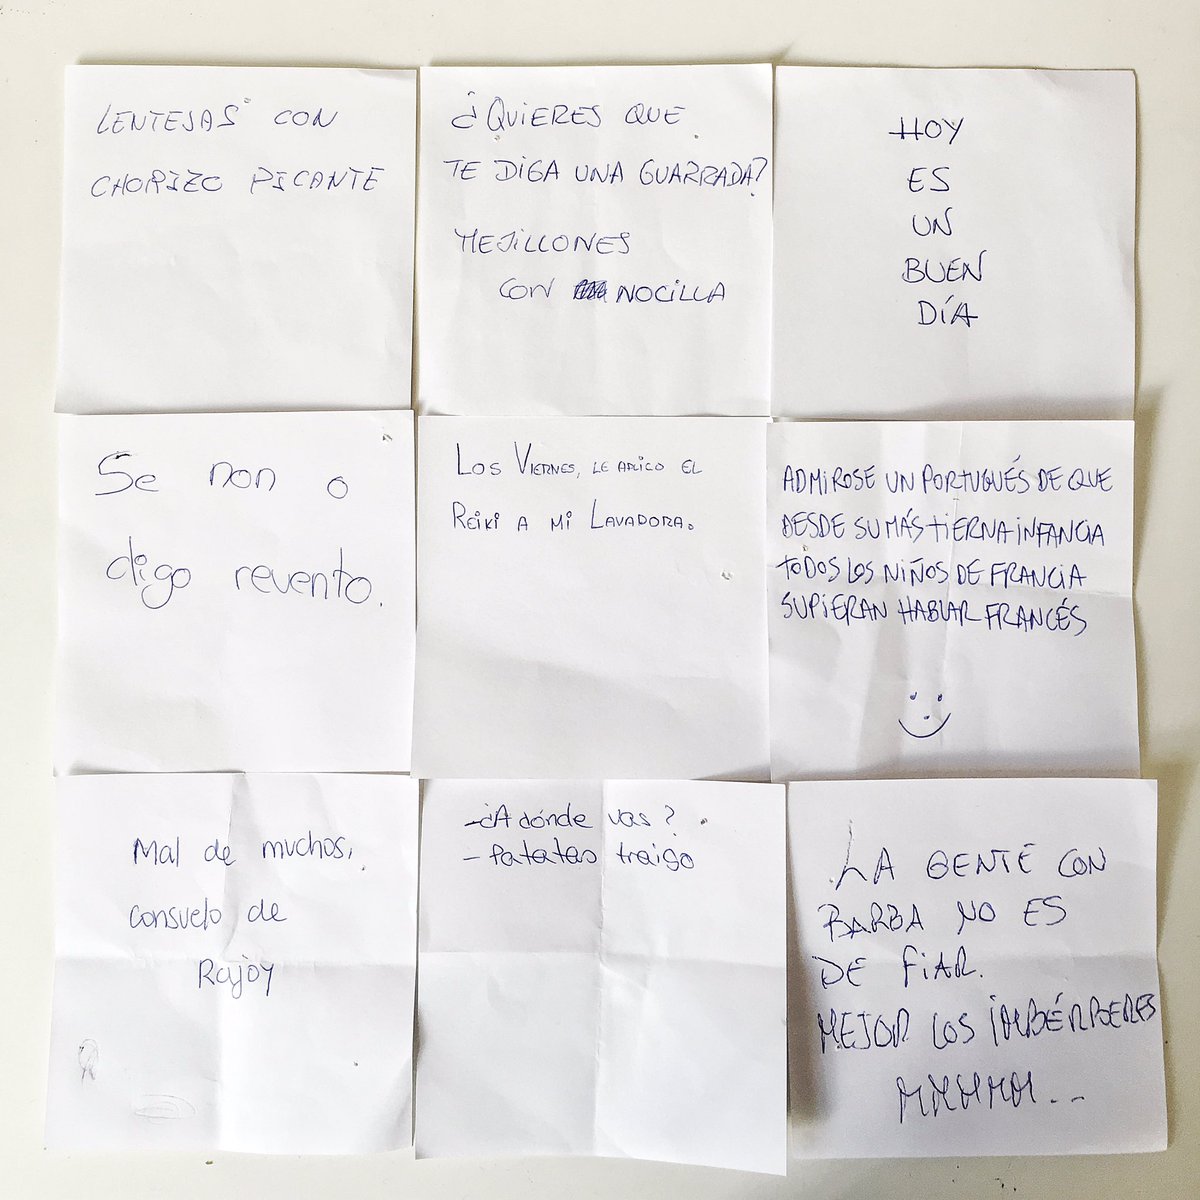 LENTEJAS CON
CHORIZO PICANTE
¿QUIERES QUE
TE DIGA UNA GUARRADA?
MEJILLONES
CON NOCILLA
HOY
ES
UN
BUEN
DÍA
Se non o
digo revento.
LOS VIERNES, LE APLICO EL
REIKI A MI LAVADORA.
ADMIROSE UN PORTUGUÉS DE QUE
DESDE SU MÁS TIERNA INFANCIA
TODOS LOS NIÑOS DE FRANCIA
SUPIERAN HABLAR FRANCÉS
Mal de muchos,
consuelo de
Rajoy
-¿A dónde vas?
- Patatas traigo
LA GENTE CON
BARBA NO ES
DE FIAR.
MEJOR LOS IMBÉRBERES